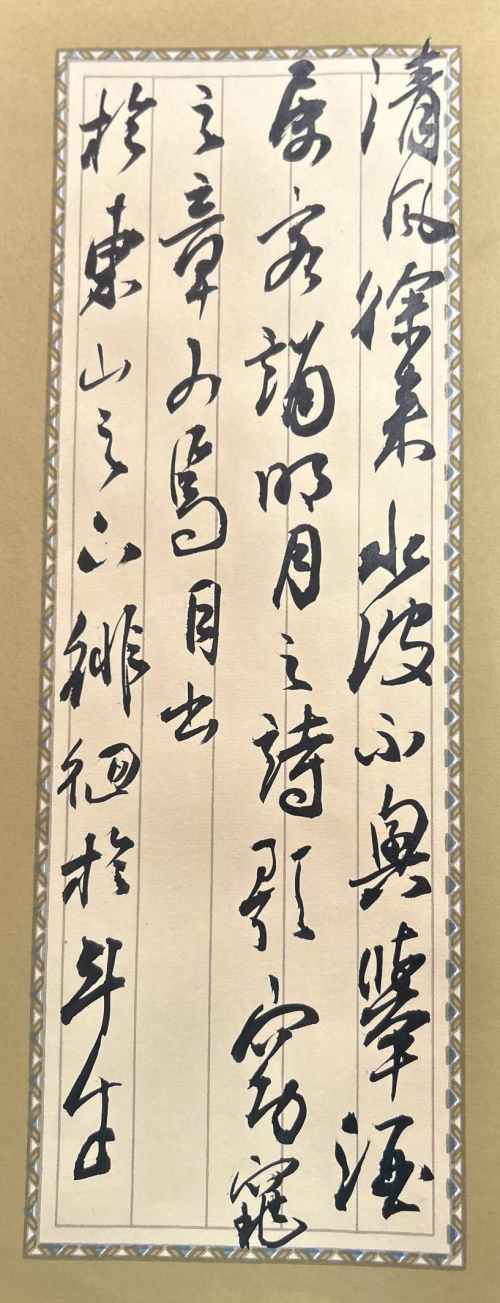 清风徐来水波不興舉酒
属客誦明月之詩歌窈窕
之章少焉月出
於東山之上徘徊於斗牛